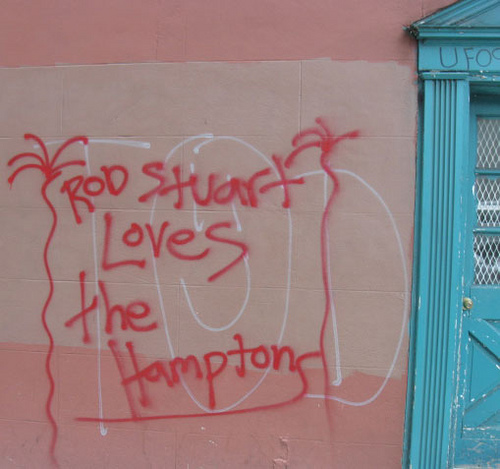 UFOs
ROD Stuart
Loves
the
Hamptons